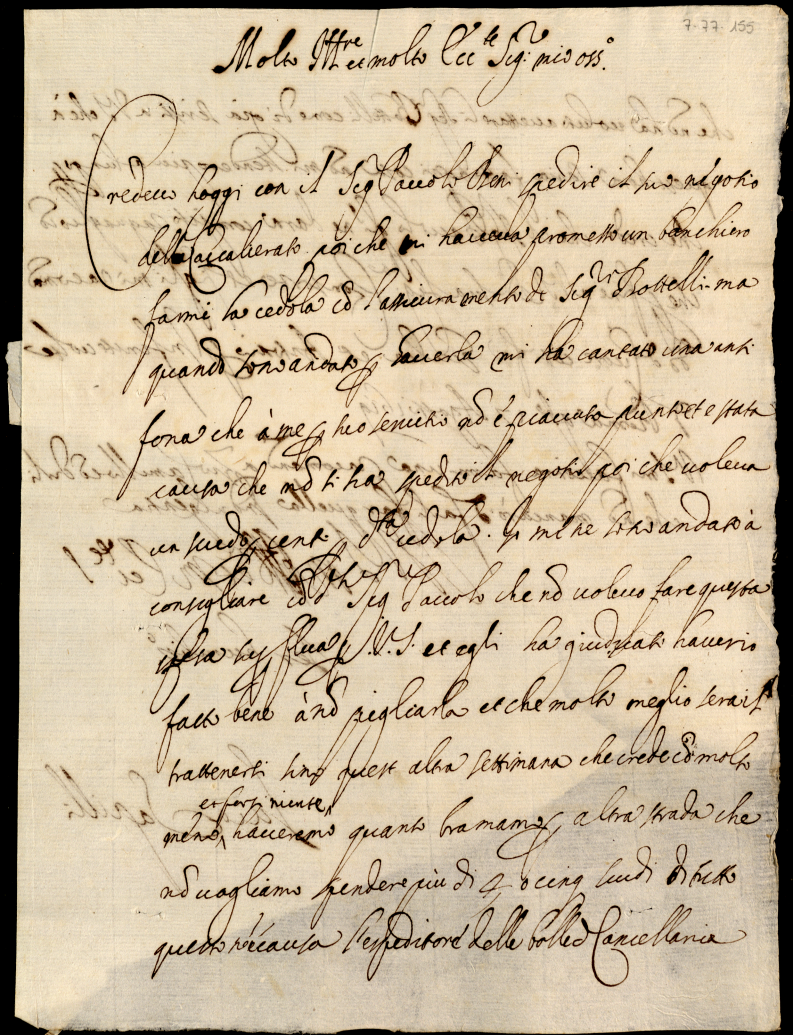 7. 77. 155
Molto Ill.re et molto Ecc.te Sig.r mio oss.o
Credevo hoggi con il Sig.r Pauolo Beni spedire il suo negotio
della Cavalierato poi che mi haveva promesso un banchiero
farmi la cedola cō l'assicuramento de Sig.ri Bottelli. ma
quando sono andato ꝑ haverla mi ha cantato una anti
fona che à me ꝑ suo servitio nō é piacuta punto et e stata
causa che nō si ha spedito il negotio poi che voleva
un scudo ꝑ cento d.ta cedola. Io me ne sono andato à
consigliare cō Sig.r Pauolo che nō volevo fare questa
spesa ꝑ V. S. et egli ha giudicato haverio
fatto bene à nō pigliarla et che molto meglio sera il
trattenersi sino quest altra settimana che crede cō molto
et forsi niente
meno, haveremo quanto bramamo ꝑ altra strada che
nō vogliamo spendere più di 4 o cinq scudi di tutto
questo né causa l'espeditore delle bolle d Cancellaria